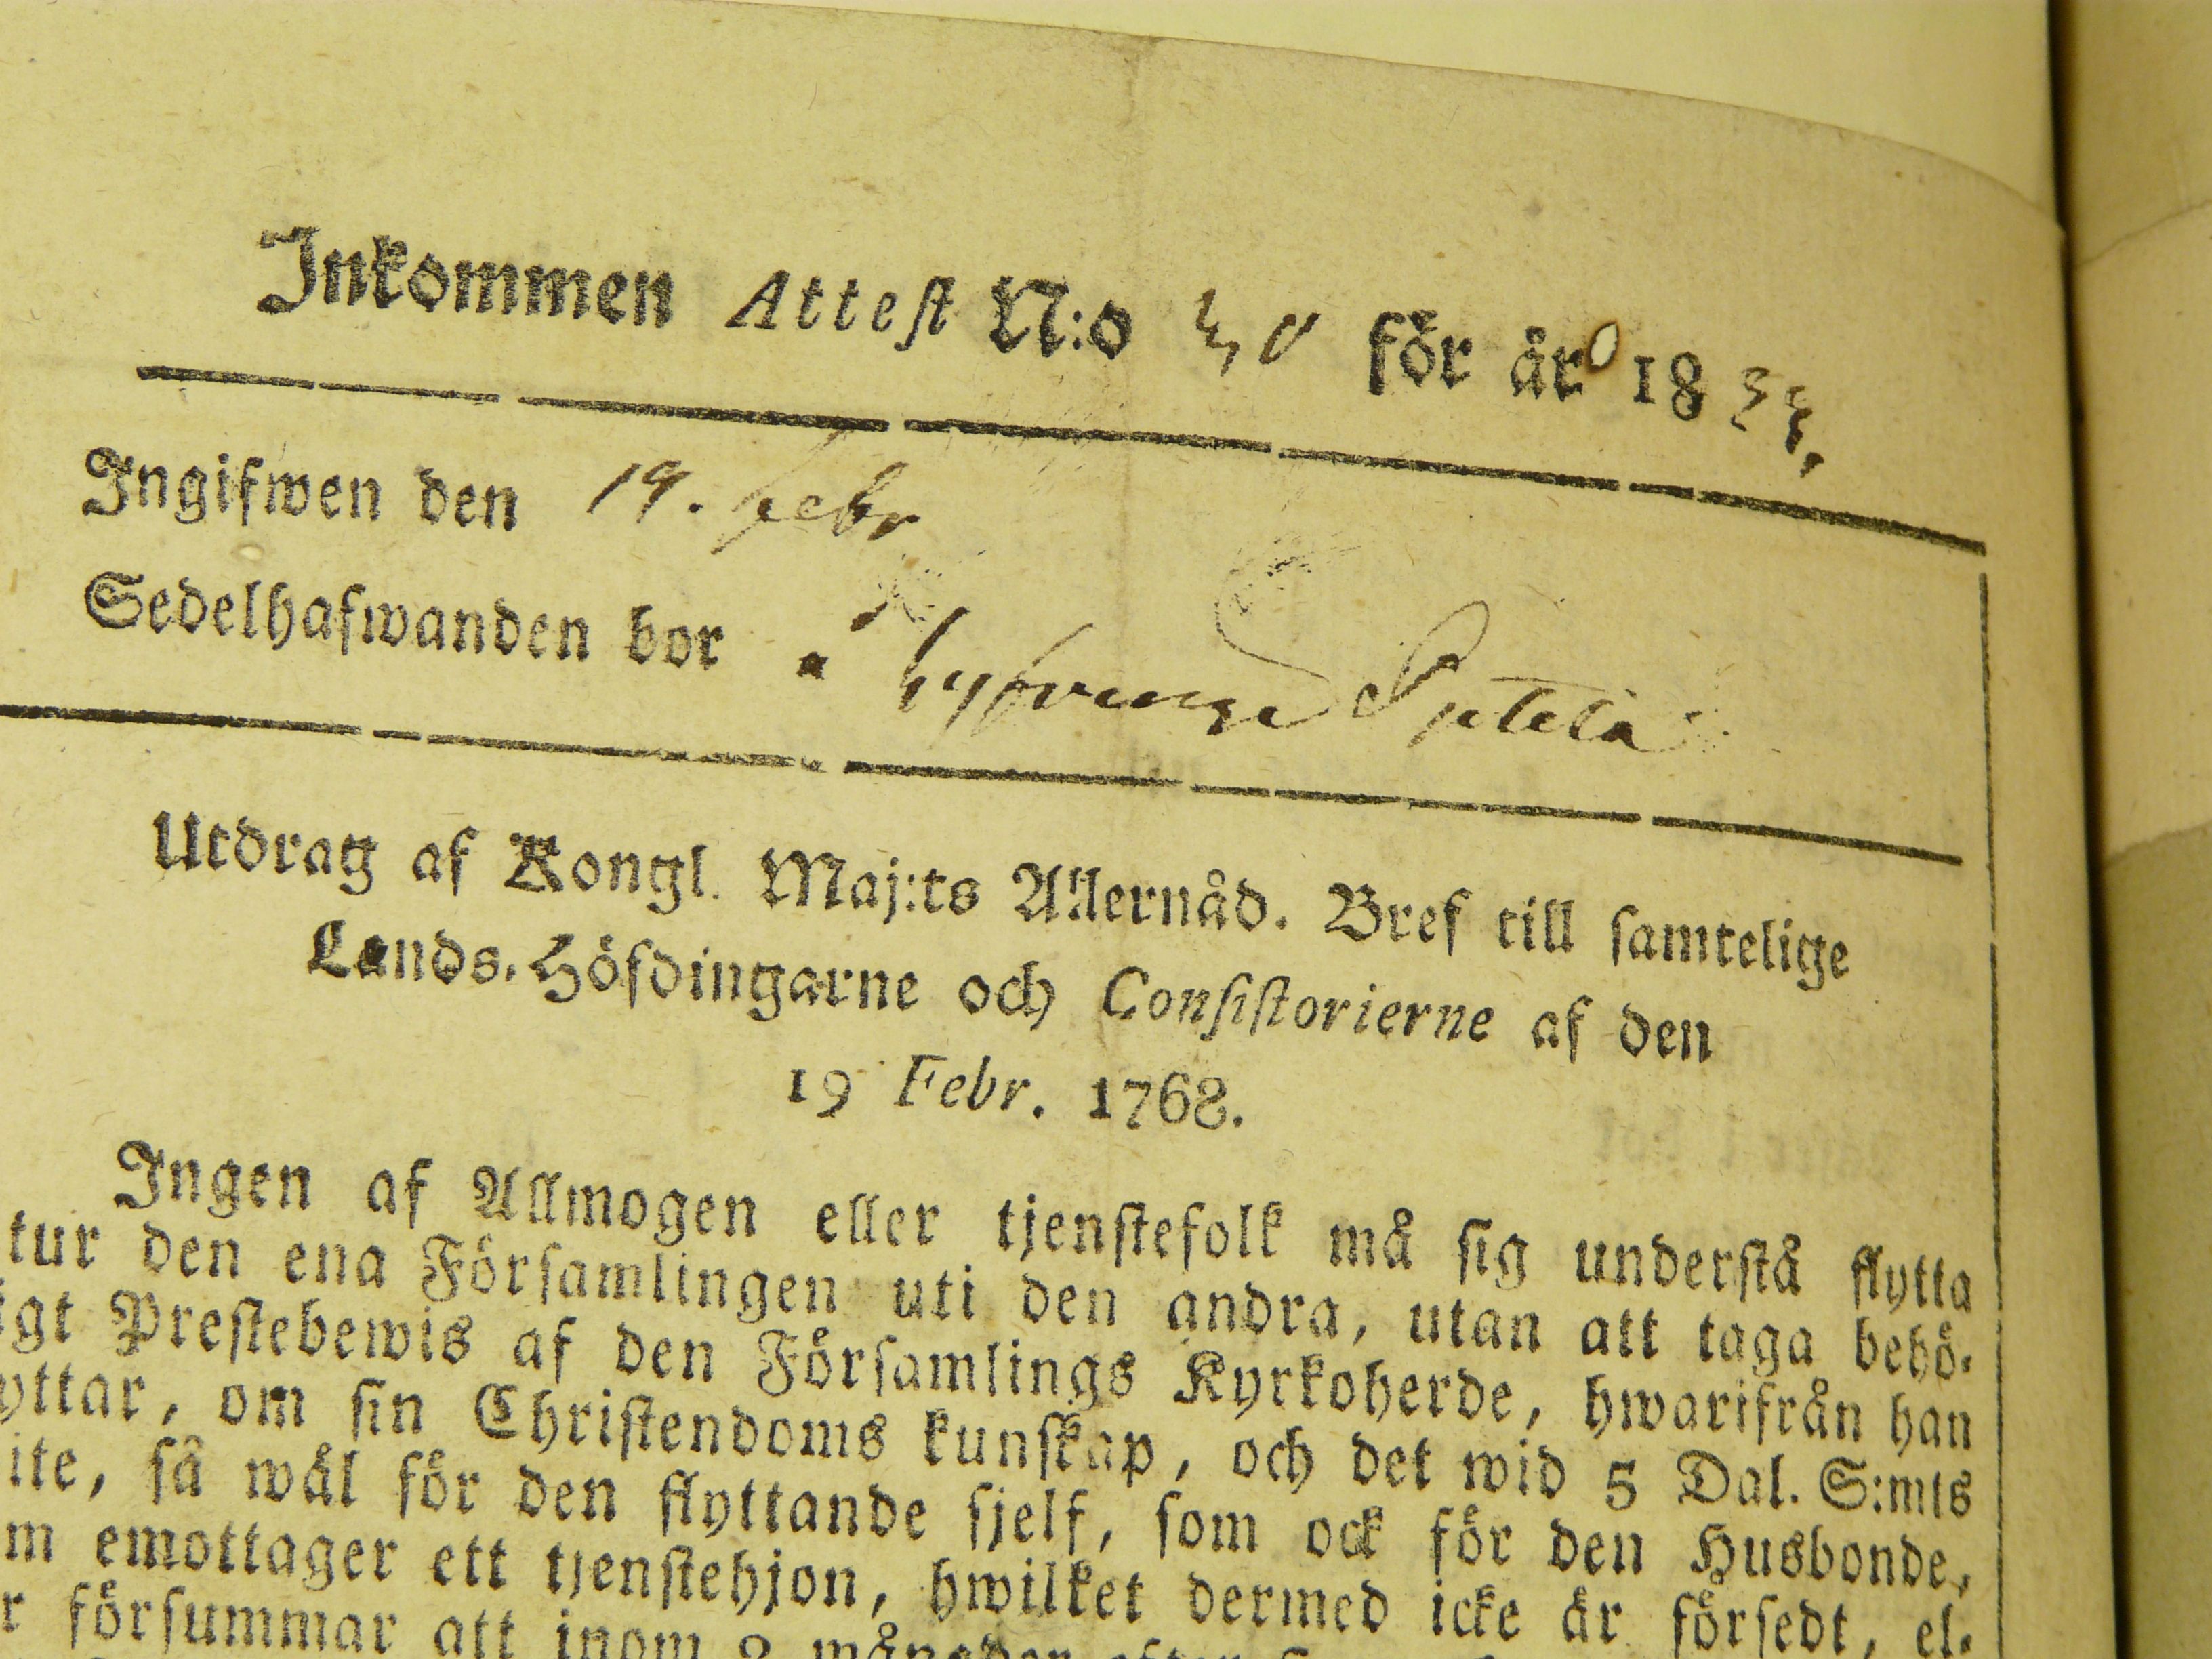 Inkommen Attest N:o 30 för år 1834.
Ingifwen den 19. Febr
Sedelhafwanden bor
Utdrag af Kongl. Maj:ts Allernåd. Bref till samtelige
Lands-Höfdingarne och Consistorierne af den
19 Febr. 1768.
Ingen af Allmogen eller tjenstefolk må sig understå flytta
tur den ena Församlingen uti den andra, utan att taga behö-
igt Prestebewis af den Församlings Kyrkoherde, hwarifrån han
yttar, om sin Christendoms kunskap, och det wid 5 Dal. S:mts
ite, så wäl för den flyttande sjelf, som ock för den Husbonde,
m emottager ett tjenstehjon, hwilket dermed icke är försedt, el-
r försummar att inom 2 månader efter